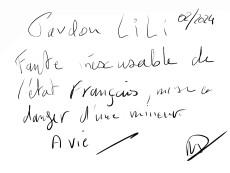 Pardon LiLi 02/2024
Faute inexcusable de
l'état Français, mise en
danger d'une mineure
A vie